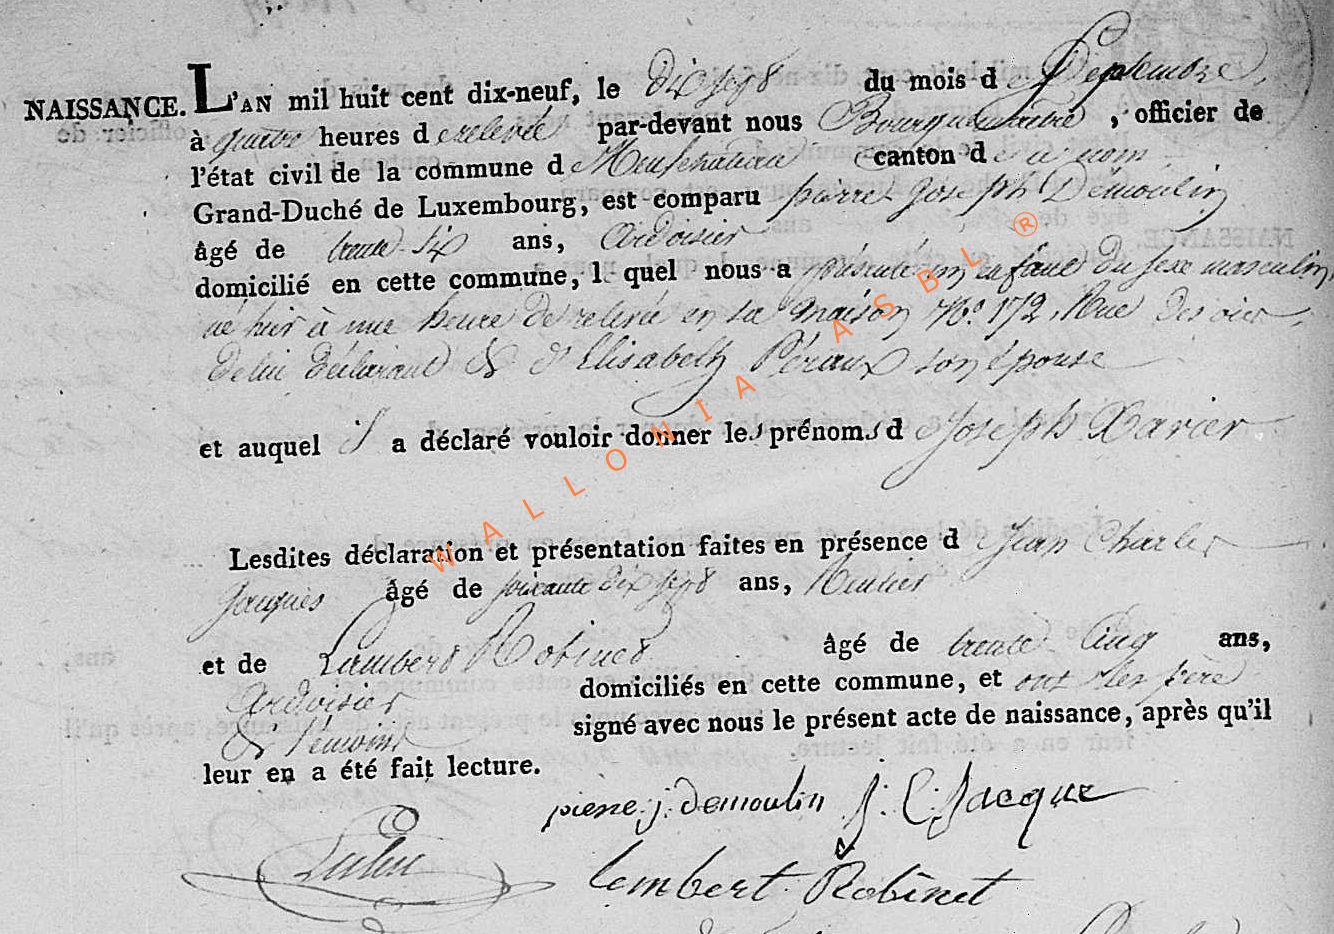 NAISSANCE. L'AN mil huit cent dix-neuf, le dix sept du mois de Septembre,
à quatre heures de relevée par-devant nous Bourguemaitre, officier de
l'état civil de la commune de Neufchateau canton de ce nom
Grand-Duché de Luxembourg, est comparu pierre Joseph Demoulin
âgé de trente six ans, ardoisier
domicilié en cette commune, lequel nous a présenté un enfant du sexe masculin
né hier à une heure de relevée en sa maison No. 172, Rue
de lui déclarant & d'Elisabeth son épouse
et auquel il a déclaré vouloir donner les prénoms de Joseph Xavier
Lesdites déclaration et présentation faites en présence de Jean Charles
Jacques âgé de soixante dix sept ans,
et de Lambert Robinet âgé de trente Cinq ans,
ardoisier domiciliés en cette commune, et ont les père
& témoins signé avec nous le présent acte de naissance, après qu'il
leur en a été fait lecture.
pierre. j. demoulin J: C: Jacque
Lembert Robinet
WALLONIA ASBL ®